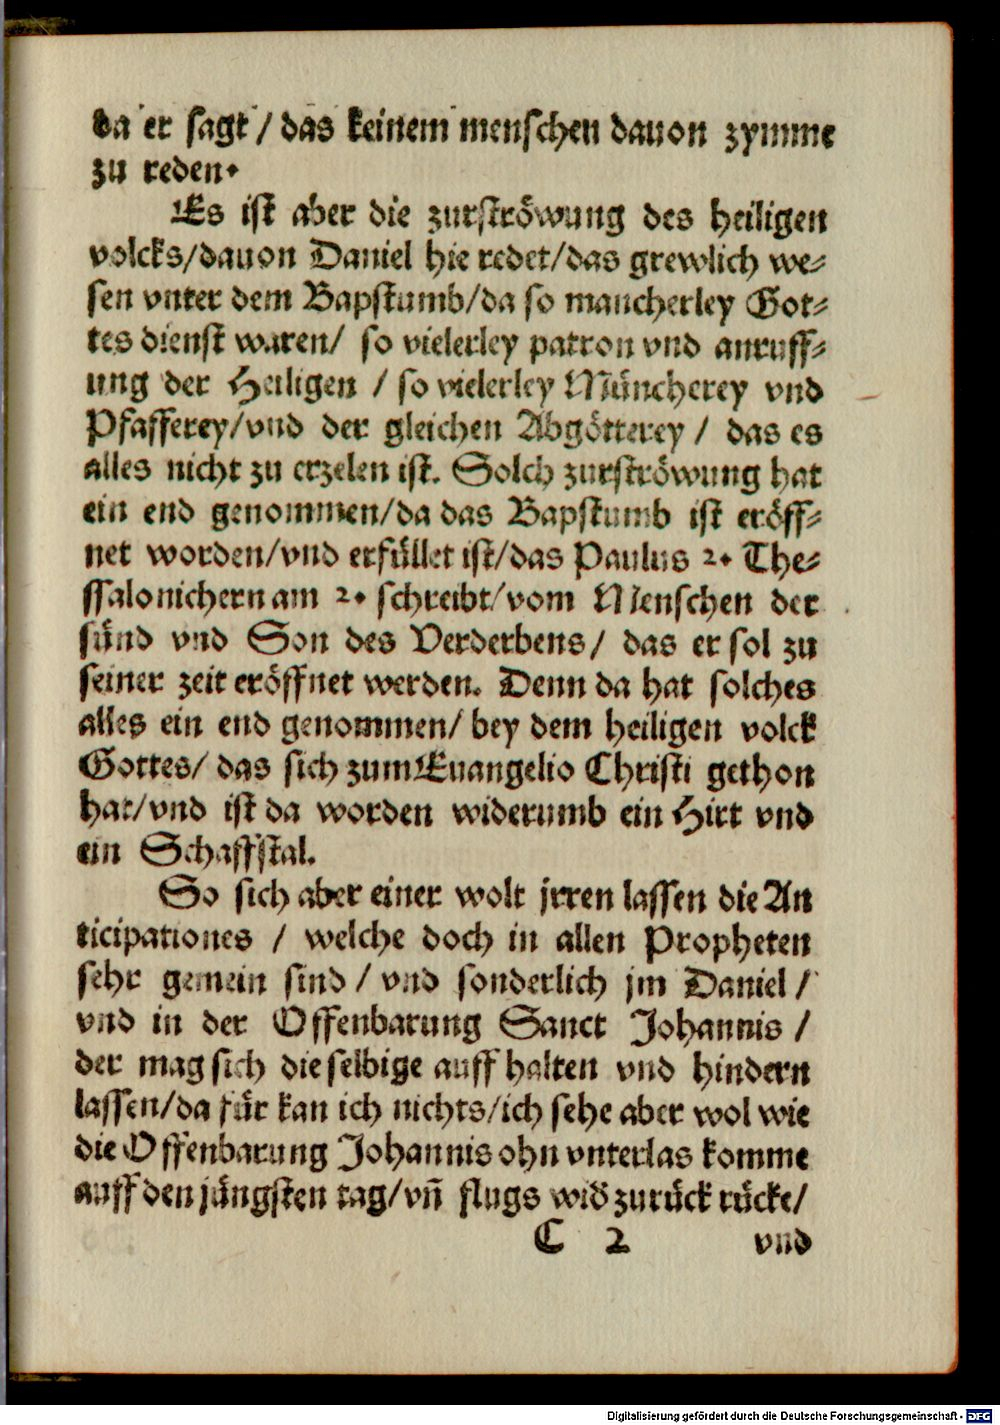 da er sagt / das keinem menschen dauon zymme
zu reden.
Es ist aber die zurströwung des heiligen
volcks/dauon Daniel hie redet/das grewlich we⸗
sen vnter dem Bapstumb/da so mancherley Got⸗
tes dienst waren/ so vielerley patron vnd anruff⸗
ung der Heiligen / so vielerley Müncherey vnd
Pfafferey/vnd der gleichen Abgötterey / das es
alles nicht zu erzelen ist. Solch zurströwung hat
ein end genommen/da das Bapstumb ist eröff⸗
net worden/vnd erfüllet ist/das Paulus 2. The⸗
ssalonichern am 2. schreibt/vom Menschen der
sünd vnd Son des Verderbens/ das er sol zu
seiner zeit eröffnet werden. Denn da hat solches
alles ein end genommen/ bey dem heiligen volck
Gottes/ das sich zum Euangelio Christi gethon
hat/vnd ist da worden widerumb ein Hirt vnd
ein Schaffstal.
So sich aber einer wolt jrren lassen die An
ticipationes / welche doch in allen Propheten
sehr gemein sind / vnd sonderlich jm Daniel /
vnd in der Offenbarung Sanct Johannis /
der mag sich die selbige auff halten vnd hindern
lassen/da für kan ich nichts/ich sehe aber wol wie
die Offenbarung Johannis ohn vnterlas komme
auff den jüngsten tag/vñ flugs wid̕ zurück rücke/
C 2 vnd
Digitalisierung gefördert durch die Deutsche Forschungsgemeinschaft - DFG